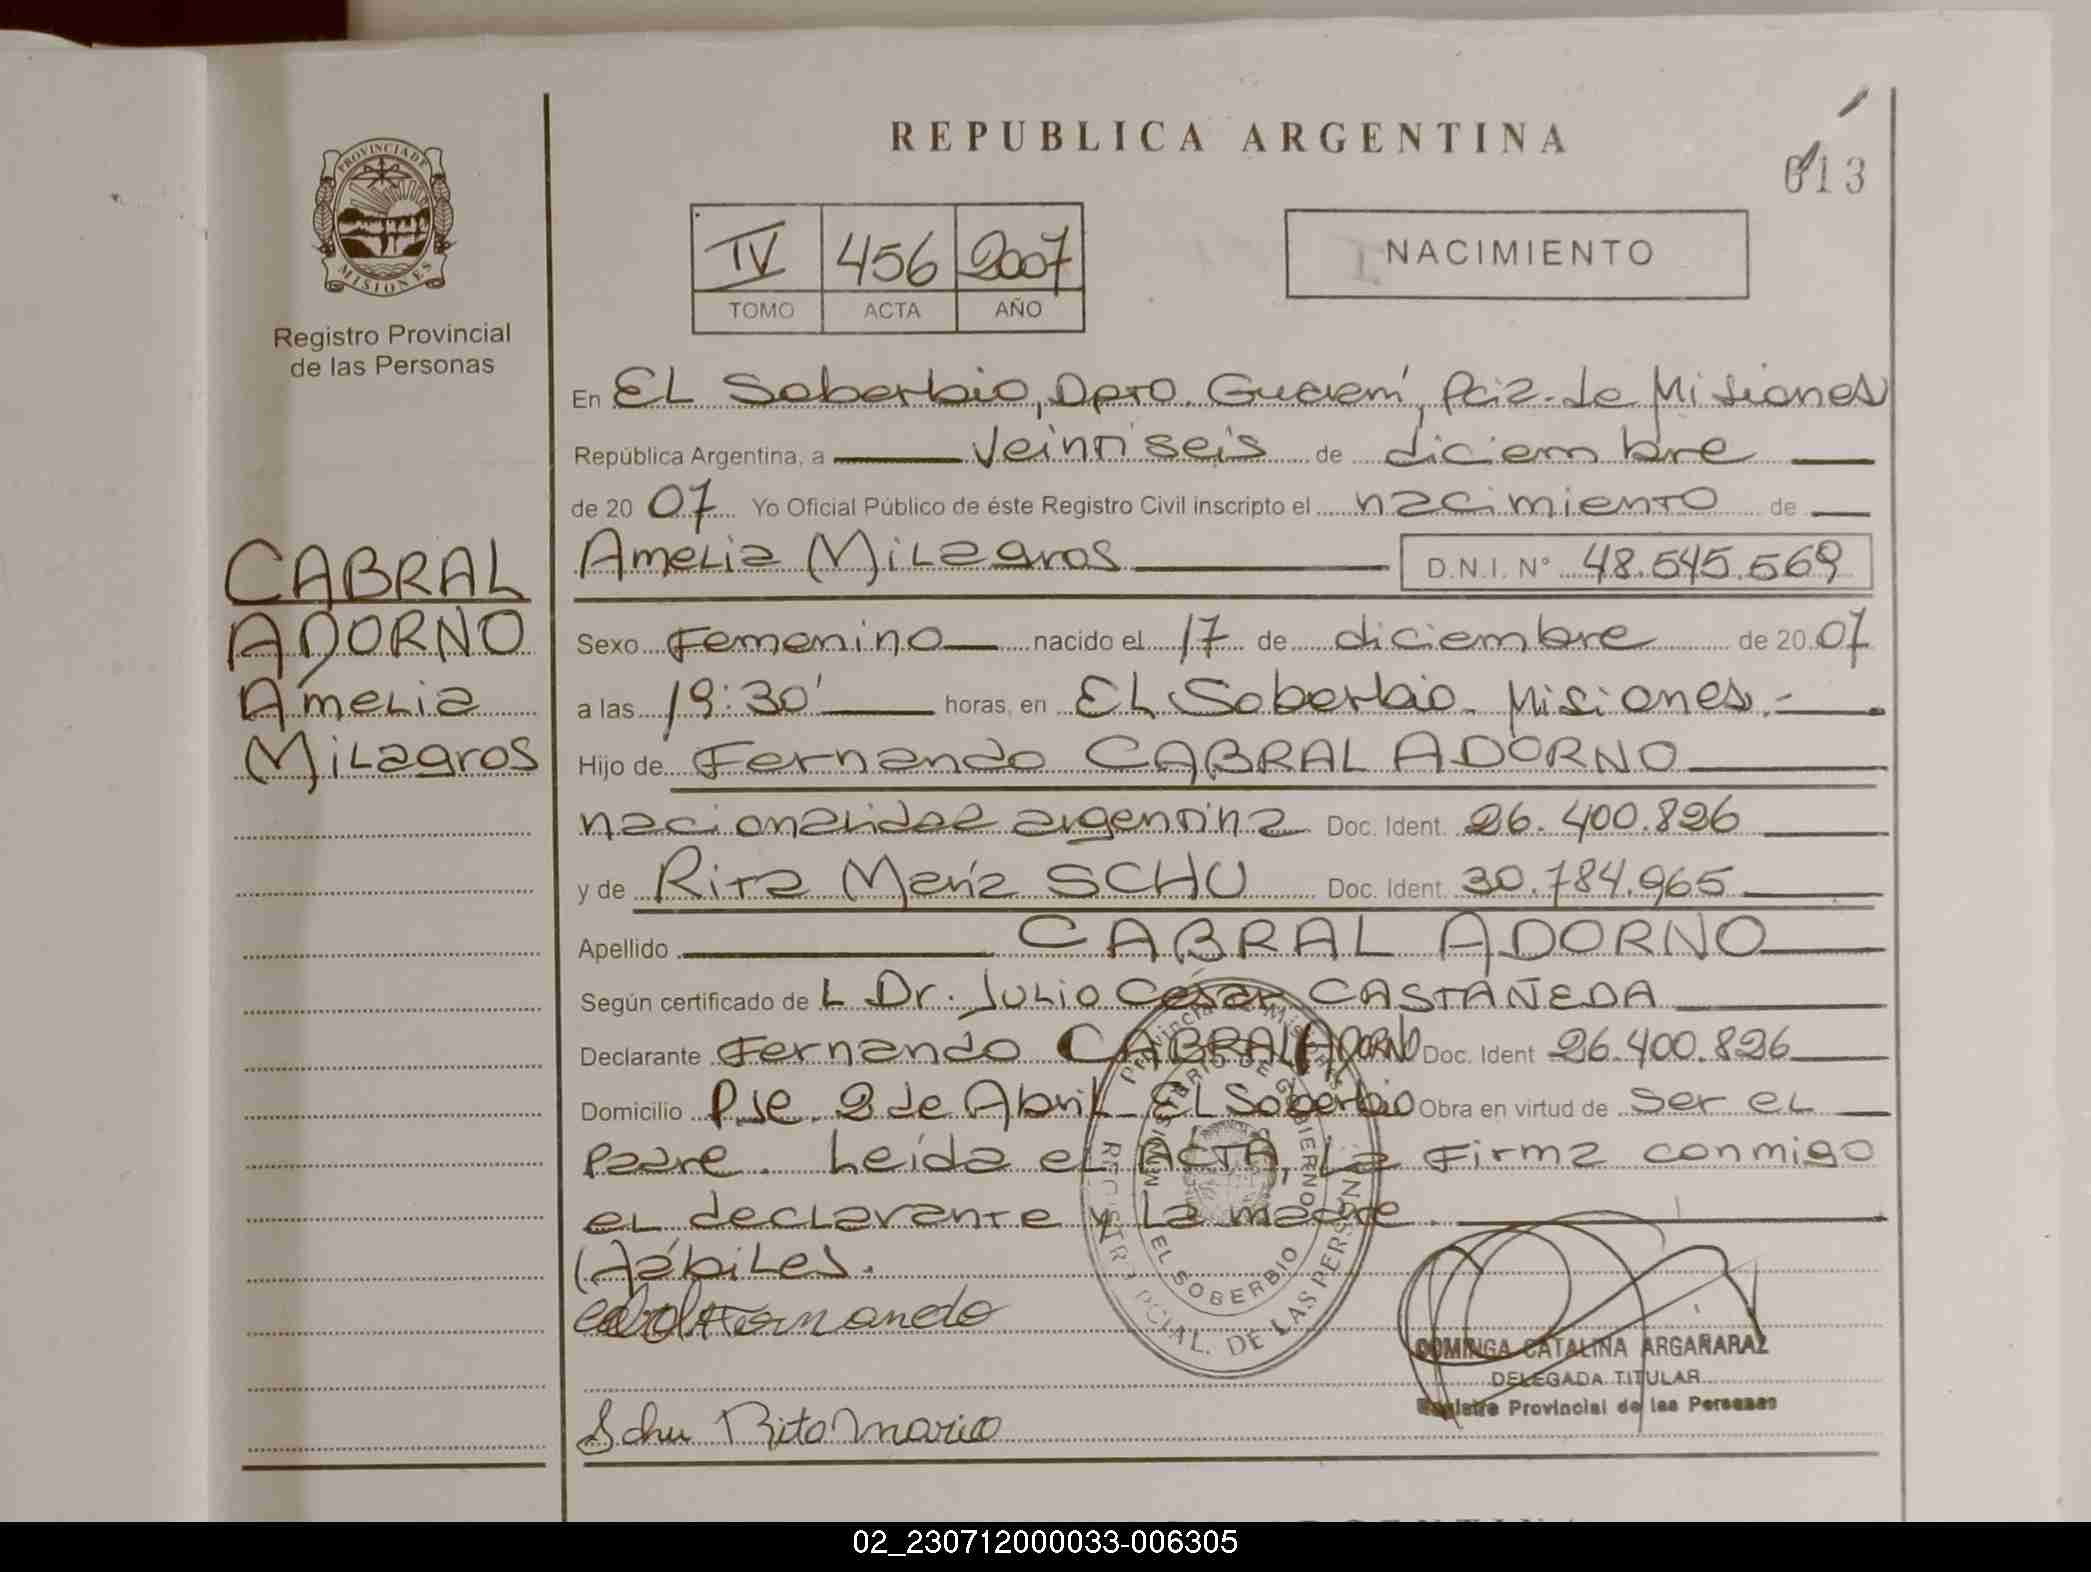 REPUBLICA ARGENTINA
013
PROVINCIA DE
MISIONES
Registro Provincial
de las Personas
IV 456 2007
TOMO ACTA AÑO
NACIMIENTO
En EL Soberbio, Dpto. Guaraní, Pcia. de Misiones
República Argentina, a Veintiseis de diciembre
de 20 07 Yo Oficial Público de éste Registro Civil inscripto el nacimiento de
Amelia Milagros D.N.I. N° 48.545.569
CABRAL
ADORNO
Amelia
Milagros
Sexo Femenino nacido el 17 de diciembre de 20 07
a las 19:30' horas, en EL Soberbio. Misiones.-
Hijo de Fernando CABRAL ADORNO
nacionalidad argentina Doc. Ident. 26.400.826
y de Rita María SCHU Doc. Ident. 30.784.965
Apellido CABRAL ADORNO
Según certificado de L Dr. Julio César CASTAÑEDA
Declarante Fernando CABRAL ADORNO Doc. Ident 26.400.826
Domicilio Pje. 2 de Abril - EL Soberbio Obra en virtud de ser el
padre. Leída el ACTA, La Firma conmigo
el declarante y La madre.
Hábiles.
Fernando
Schu Rita Maria
Provincia de Misiones
MINISTERIO DE GOBIERNO
REGISTRO PCIAL. DE LAS PERSONAS
EL SOBERBIO
DOMINGA CATALINA ARGAÑARAZ
DELEGADA TITULAR
Registro Provincial de las Personas
02_230712000033-006305